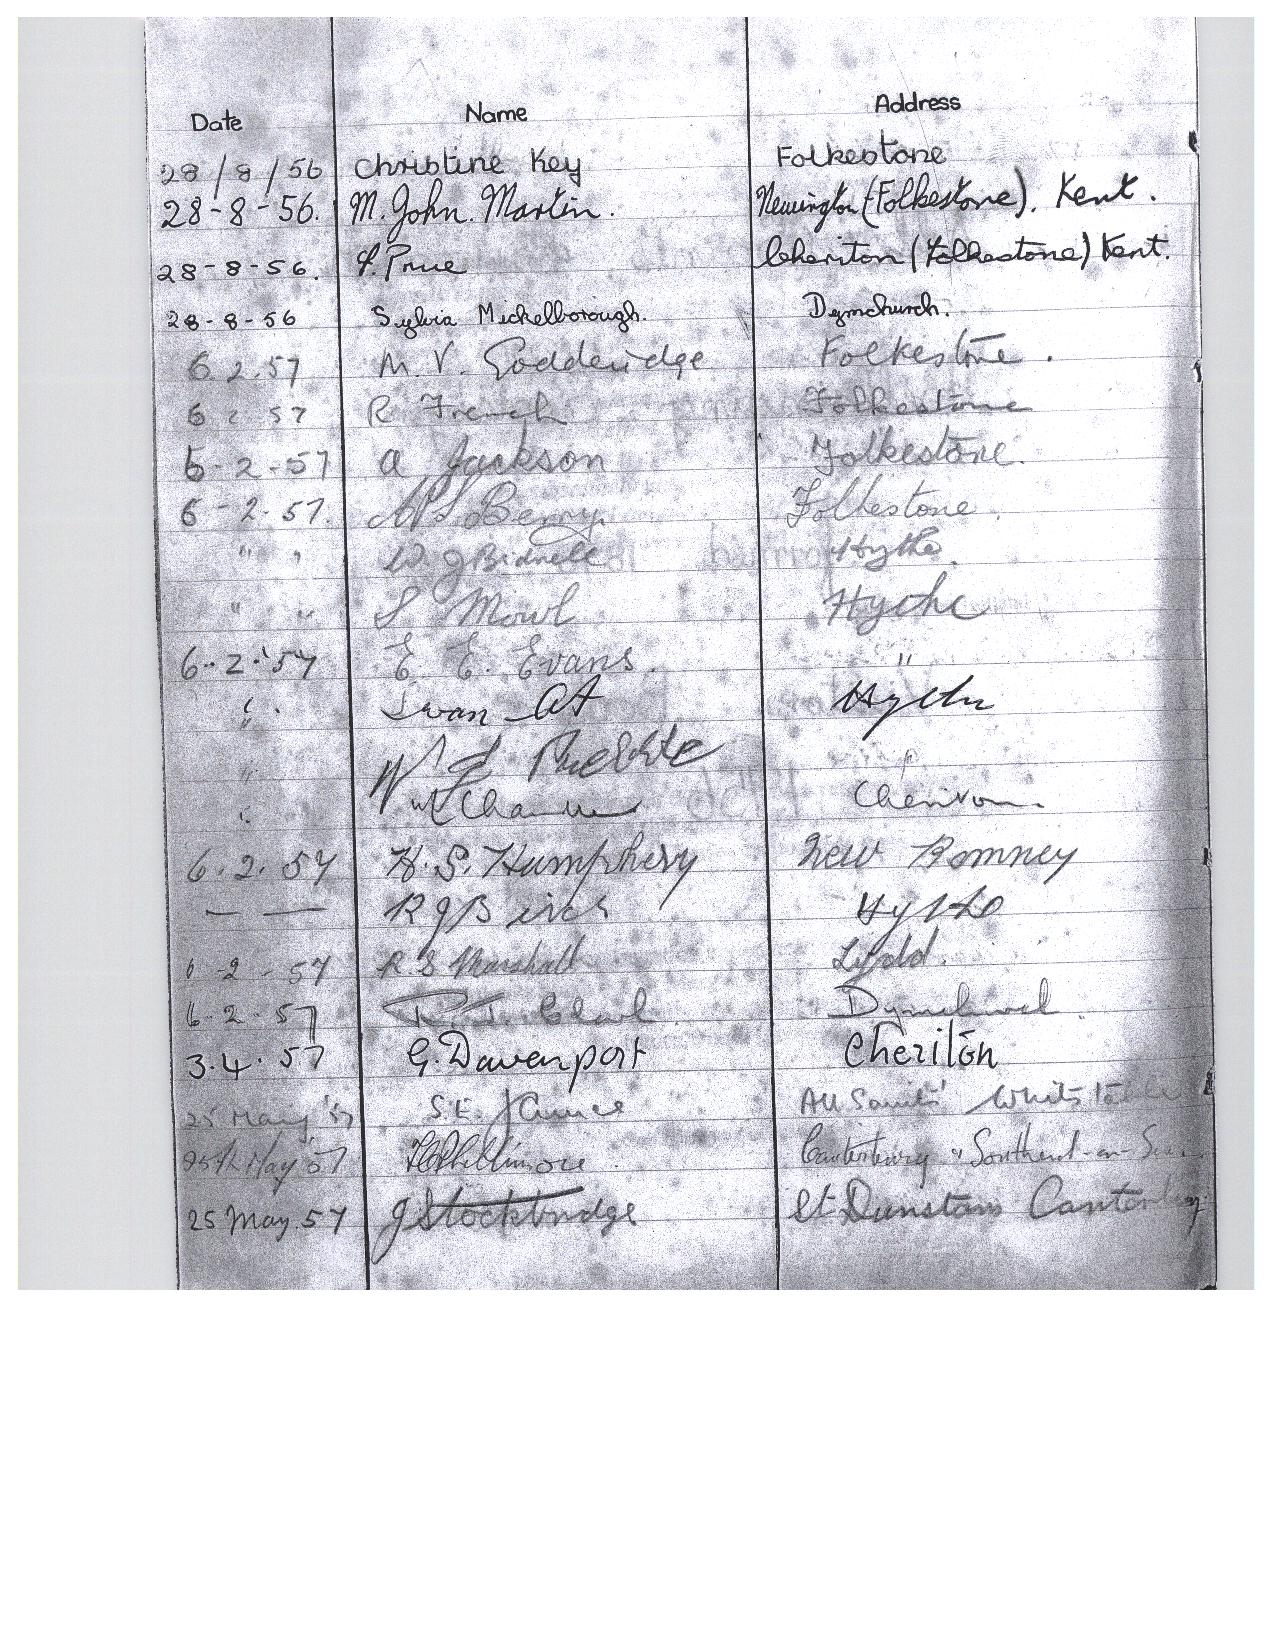 Date Name Address
28/8/56 Christine Key Folkestone
28-8-56. M. John. Martin. Newington (Folkestone). Kent.
28-8-56. Cheriton (Folkestone) Kent.
28-8-56 Sylvia Mickelborough. Dymchurch.
6.2.57 M. V. Godderidge Folkestone.
6 2 57 R French Folkestone
6-2-57 A Jackson Folkestone.
6-2-57. Berry. Folkestone.
" " W. J Bidwell Hythe.
" " S Mowl Hythe
6.2.'57 E. E. Evans. "
" Swan Hythe
"
" Cheriton.
6.2.57 H. S. Humphery New Romney
— — R J Birch Hythe
6-2-57 R S Marshall Lydd.
6.2.57 Dymchurch.
3.4.57 G. Davenport Cheriton
25 May '57 S.E. All Saints' Whitstable
25th May 57 Canterbury & Southend-on-Sea.
25 May. 57 J Stockbridge St Dunstans Canterbury.